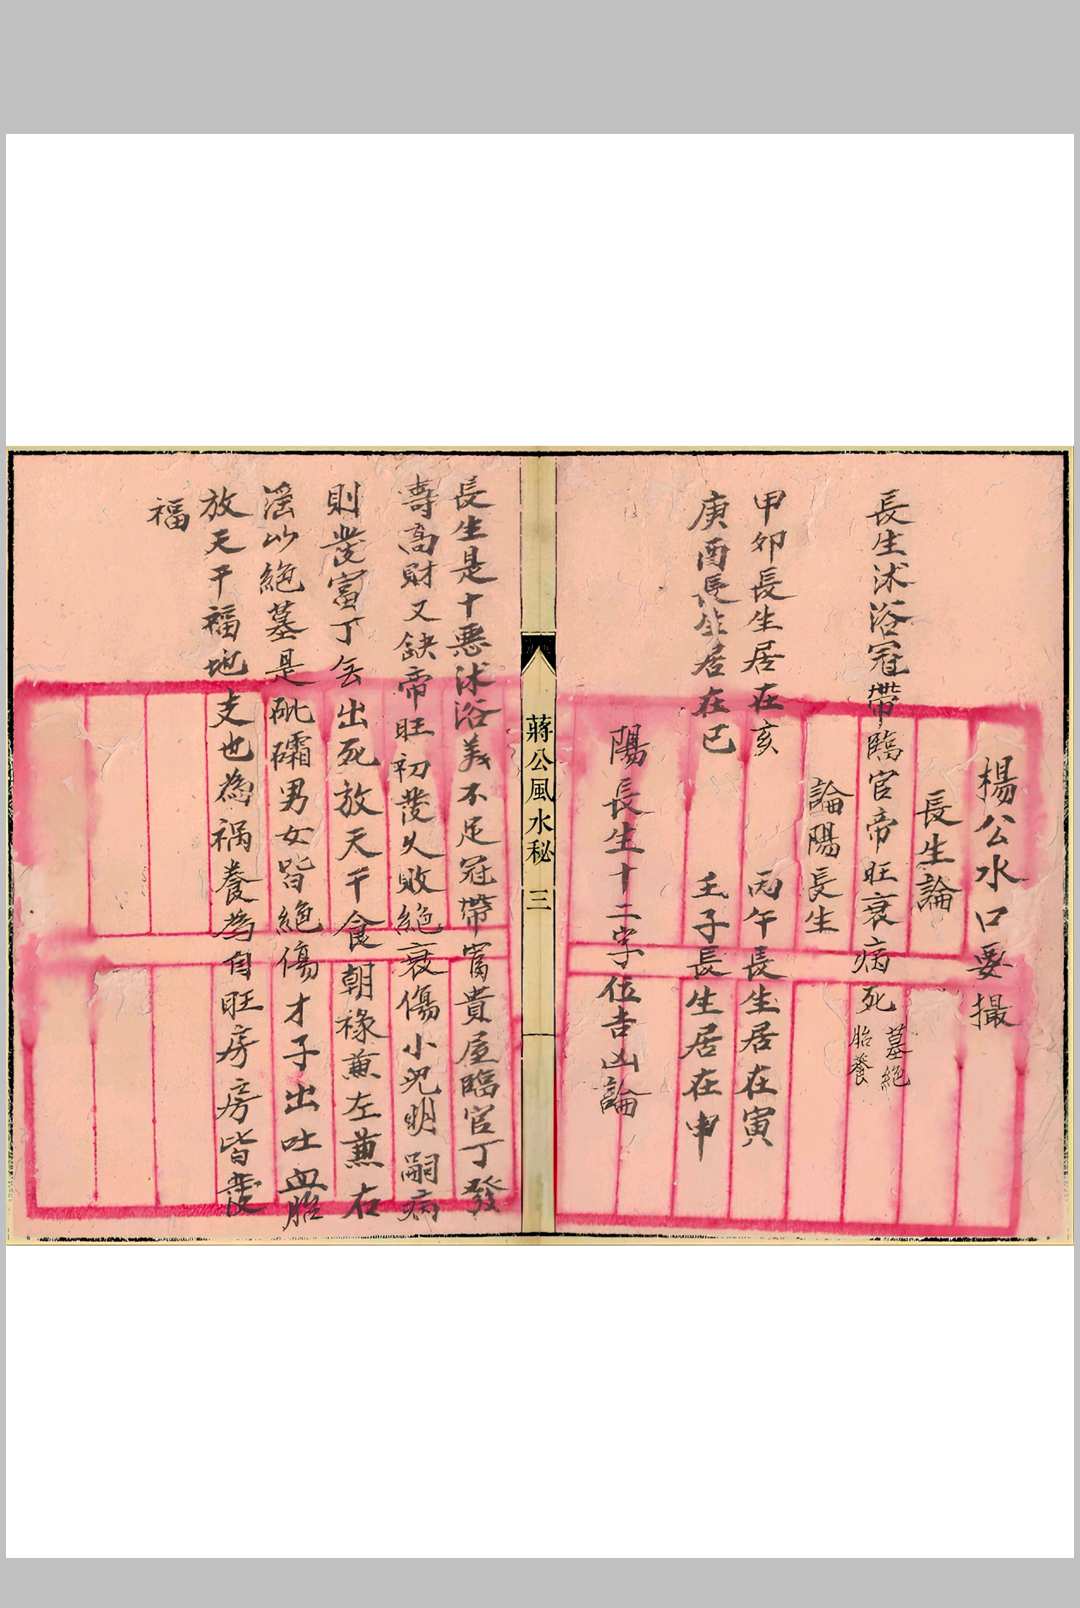 楊公水口要撮
長生論
長生沭浴冠帶臨官帝旺衰病死墓絕胎養
論陽長生
甲卯長生居在亥 丙午長生居在寅
庚酉長生居在巳 壬子長生居在申
陽長生十二字位吉凶論
蔣公風水秘 三
長生是十惡沭浴義不足冠帶富貴屋臨官丁發
壽高財又缺帝旺初發久敗絕衰傷小兒明嗣病
則發富丁無出死放天干食朝祿兼左兼右
淫以絕墓是砒礵男女皆絕傷才子出吐血胎
放天干福地支也為禍養為自旺房房皆發
福